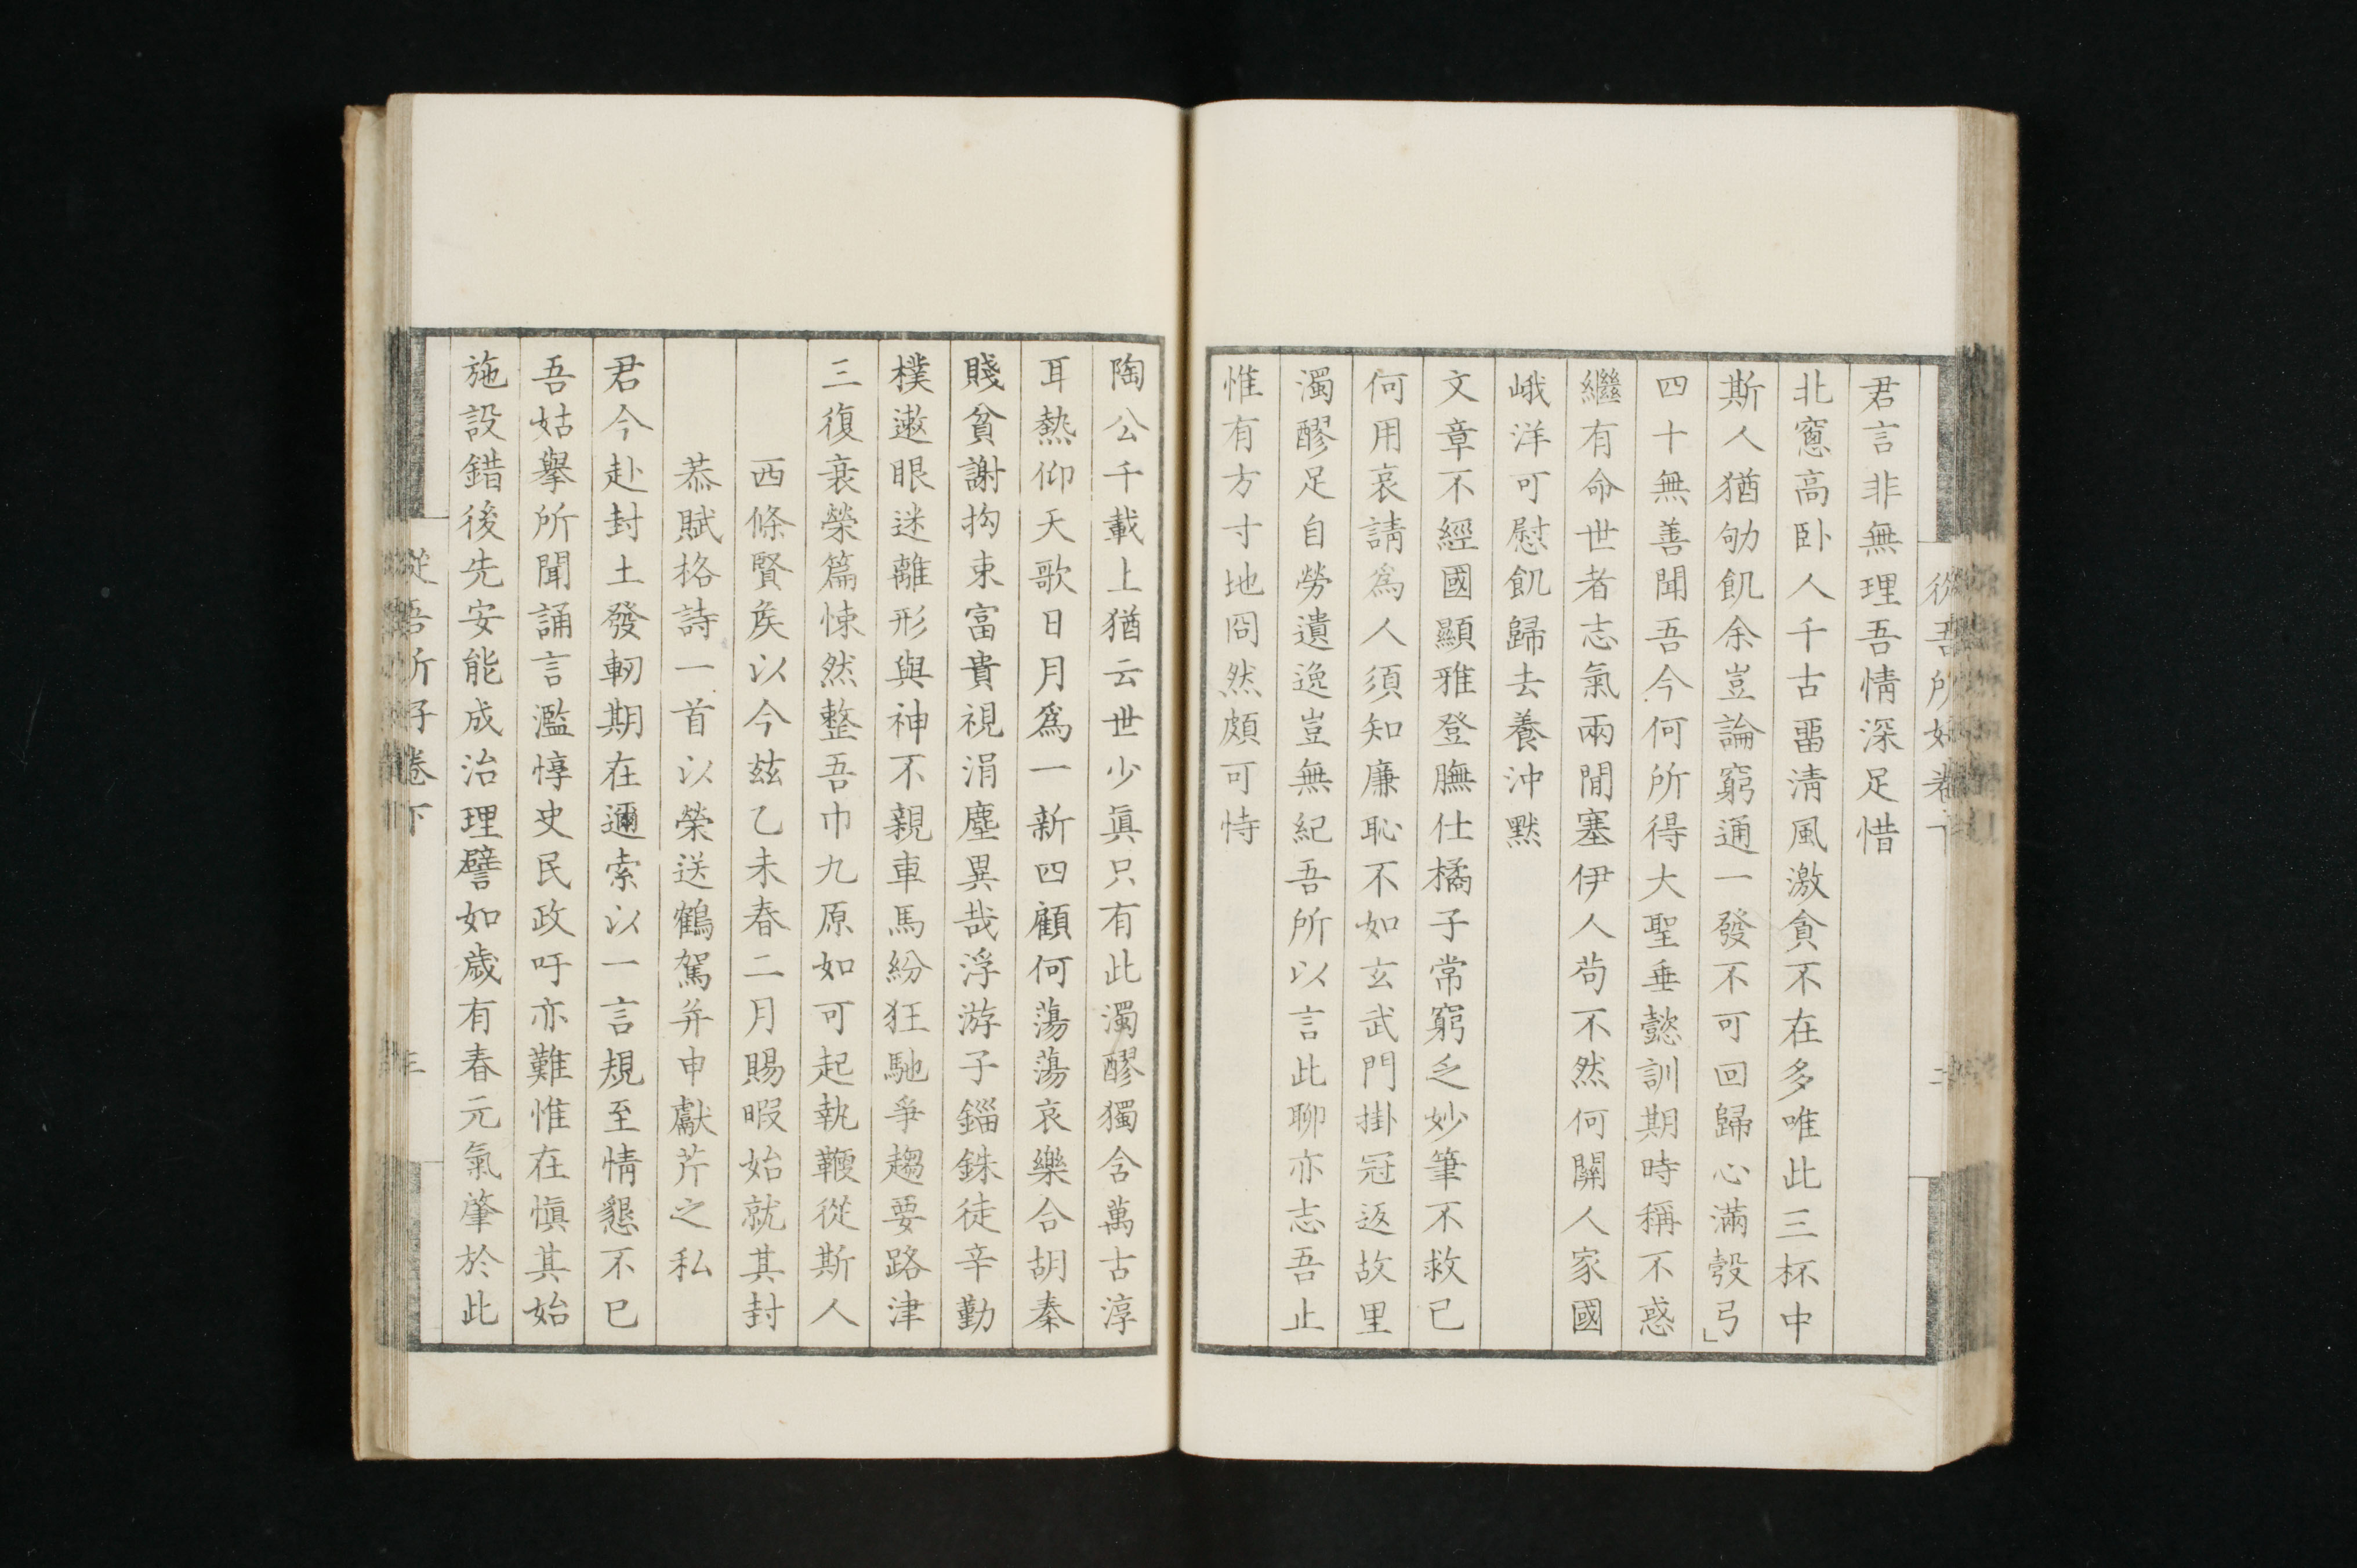 從吾所好卷下
君言非無理吾情深足惜
北窻高卧人千古畱淸風激貪不在多唯此三杯中
斯人猶劬飢余豈論窮通一發不可回歸心滿彀弓」
四十無善聞吾今何所得大聖垂懿訓期時稱不惑
繼有命世者志氣兩間塞伊人苟不然何關人家國
峨洋可慰飢歸去養沖默
文章不經國顯雅登膴仕橘子常窮乏妙筆不救已
何用哀請爲人須知廉恥不如玄武門掛冠返故里
濁醪足自勞遺逸豈無紀吾所以言此聊亦志吾止
惟有方寸地冏然頗可恃
陶公千載上猶云世少眞只有此濁醪獨含萬古淳
耳熱仰天歌日月爲一新四顧何蕩蕩哀樂合胡秦
賤貧謝拘束富貴視涓塵異哉浮游子錙銖徒辛勤
樸遬眼迷離形與神不親車馬紛狂馳爭趨要路津
三復衰榮篇悚然整吾巾九原如可起執鞭從斯人
西條賢矦以今玆乙未春二月賜暇始就其封
恭賦格詩一首以榮送鶴駕并申獻芹之私
君今赴封土發軔期在邇索以一言規至情懇不已
吾姑擧所聞誦言濫惇史民政吁亦難惟在愼其始
施設錯後先安能成治理譬如歲有春元氣肇於此
從吾所好卷下